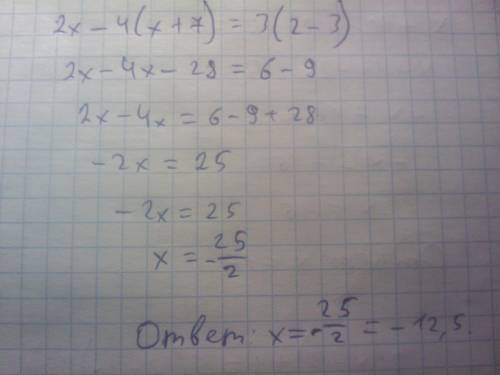 2x - 4(x + 7) = 3(2 - 3)
2x - 4x - 28 = 6 - 9
2x - 4x = 6 - 9 + 28
- 2x = 25
- 2x = 25
x = -25/2
Ответ: x = -25/2 = - 12,5.